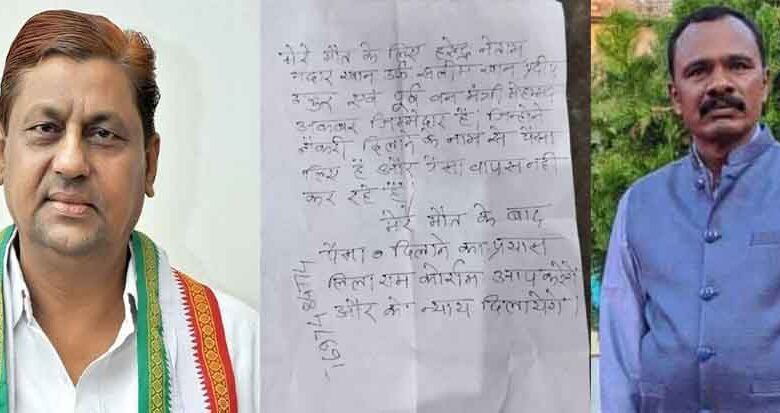 मेरे मौत के लिए हरेन्द्र नेताम
मदार खान उर्फ सलीम खान प्रदीप
ठाकुर एवं पूर्व वन मंत्री मोहम्मद
अकबर जिम्मेदार है। जिन्होने
नौकरी दिलाने के नाम से पैसा
लिए है और पैसा वापस नही
कर रहे है
मेरे मौत के बाद
पैसा दिलाने का प्रयास
लिलाराम कोर्राम आप करेंगे
और के न्याय दिलायेंगे।